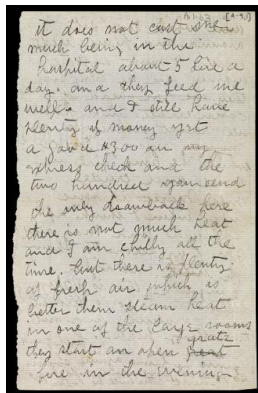 it does not cost me
much being in the
hospital about 5 lire a
day. and they feed me
well. and I still have
plenty of money yet
a good $300 on my
express check and the
two hundred you send
the only drawback here
there is not much heat
and I am chilly all the
time. but there is plenty
of fresh air which is
better them steam heat
in one of the large rooms
they start an open grate
fire in the evening